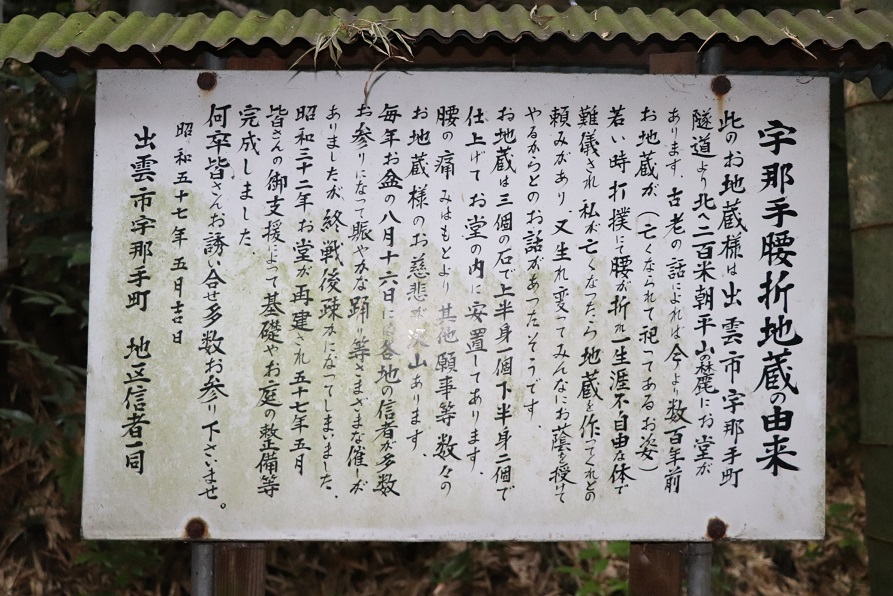 宇那手腰折地蔵の由来
此のお地蔵様は出雲市宇那手町
隧道より北へ二百米朝平山の麓にお堂が
あります、古老の話によれば今より数百年前
お地蔵が(亡くなられて祀ってあるお姿)
若い時打撲にて腰が折れ一生涯不自由な体で
難儀され私が亡くなったら地蔵を作ってくれとの
頼みがあり、又生れ変ってみんなにお蔭を授けて
やるからとのお話があったそうです.
お地蔵は三個の石で上半身一個下半身二個で
仕上げてお堂の内に安置してあります.
腰の痛みはもとより其他願事等数々の
お地蔵様のお慈悲が沢山あります
毎年お盆の八月十六日には各地の信者が多数
お参りになって賑やかな踊り等さまざまな催しが
ありましたが終戦後疎かになってしまいました.
昭和三十二年お堂が再建され五十七年五月
皆さんの御支援によって基礎やお庭の整備等
完成しました
何卒皆さんお誘い合せ多数お参り下さいませ。
昭和五十七年五月廿日
出雲市宇那手町 地区信者一同